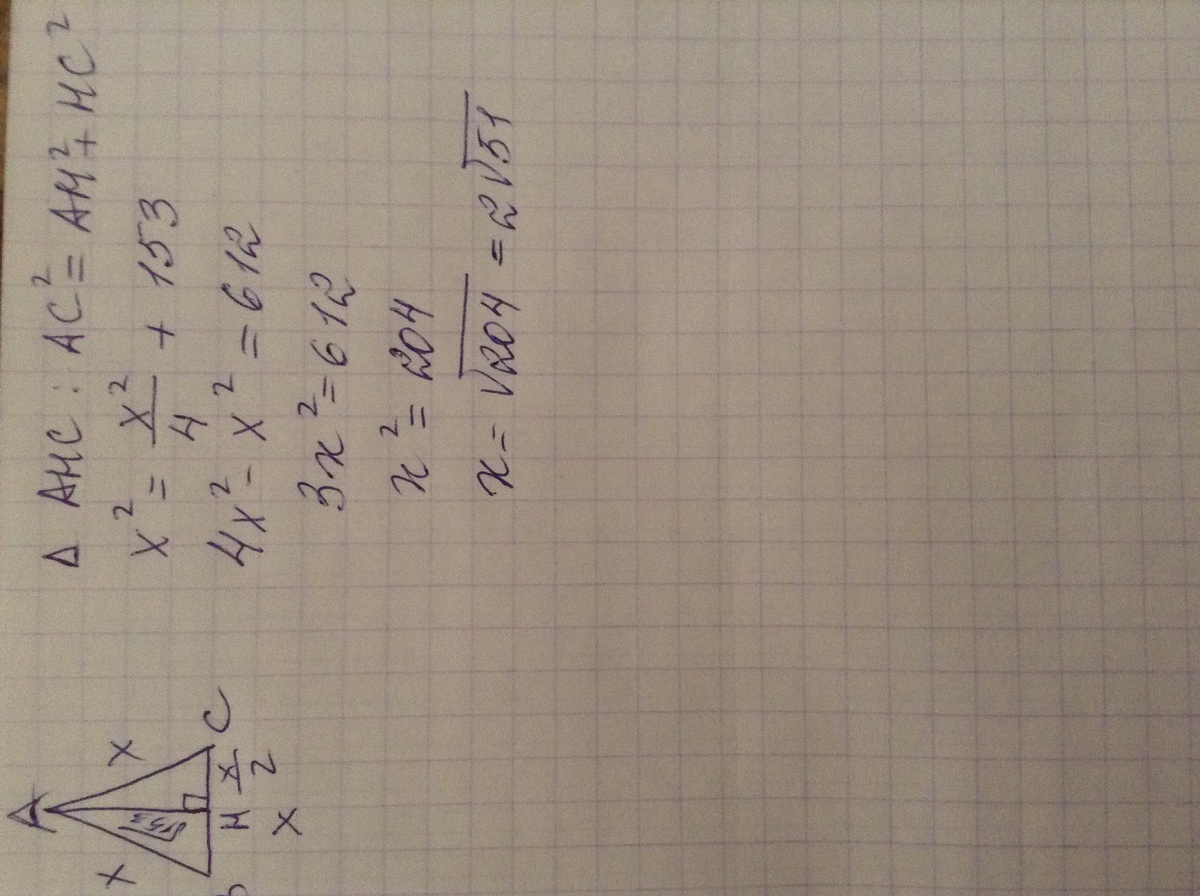 A
x
x
√153
H
x/2
C
x
Δ AHC : AC² = AH² + HC²
x² = x²/4 + 153
4x² - x² = 612
3x² = 612
x² = 204
x = √204 = 2√51